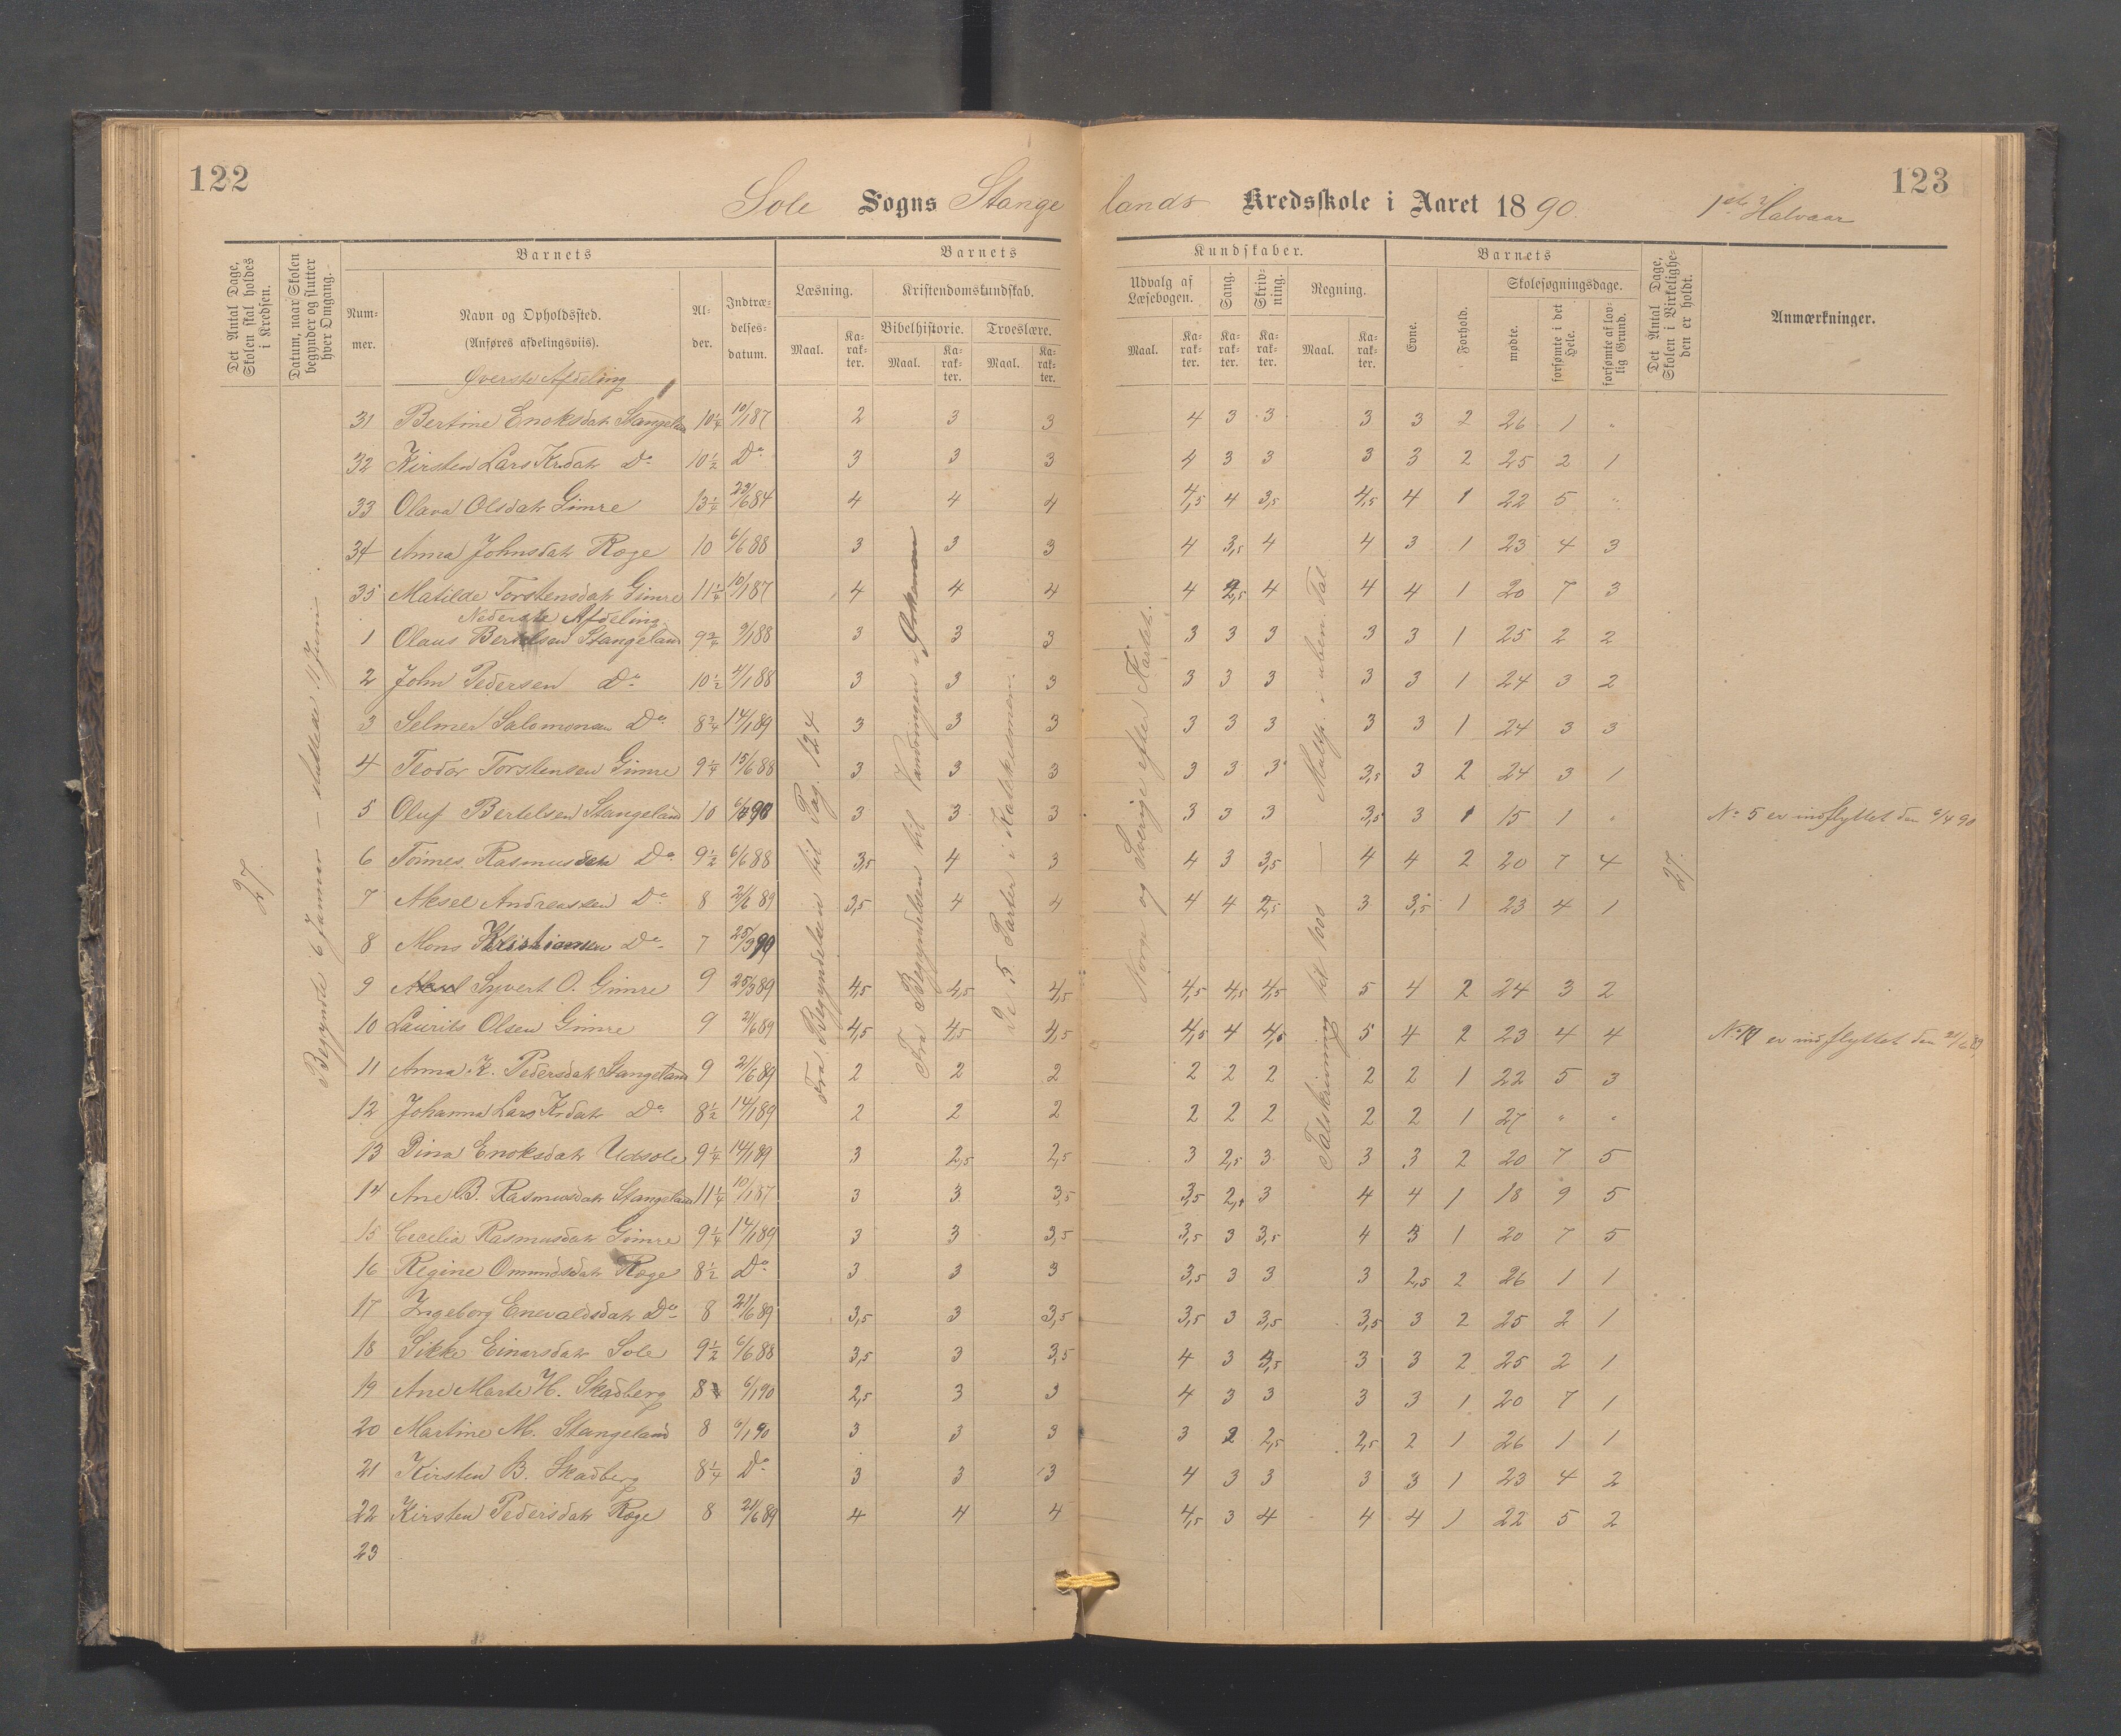 122
123
Sole Sogns Stangelands Kredsskole i Aaret 1890. 1ste Halvaar
Det Antal Dage, Skolen skal holdes i Kredsen.
Datum, naar Skolen begynder og slutter hver Omgang.
Barnets
Nummer.
Navn og Opholdssted.
(Anføres afdelingsviis).
Alder.
Indtrædelsesdatum.
Barnets Kundskaber.
Læsning.
Maal.
Karakter.
Kristendomskundskab.
Bibelhistorie.
Maal.
Karakter.
Troeslære.
Maal.
Karakter.
Udvalg af Læsebogen.
Maal.
Karakter.
Sang.
Karakter.
Skrivning.
Karakter.
Regning.
Maal.
Karakter.
Barnets
Evne.
Forhold.
Skolesøgningsdage.
mødte.
forsømte i det Hele.
forsømte af lovlig Grund.
Det Antal Dage, Skolen i Virkeligheden er holdt.
Anmærkninger.
Øverste Afdeling
31 Bertine Enoksdatr Stangeland 10 1/4 10/1 87 2 3 3 4 3 3 3 3 2 26 1 "
32 Kirsten Lars Krdatr Do 10 1/2 Do 3 3 3 4 3 3 3 3 2 25 2 1
33 Olava Olsdatr Gimre 13 1/4 23/6 84 4 4 4 4,5 4 3,5 4,5 4 1 22 5 "
34 Anna Johnsdatr Røge 10 6/6 88 3 3 3 4 3,5 4 4 3 1 23 4 3
35 Matilde Torstensdatr Gimre 11 1/4 10/1 87 4 4 4 4 2,5 4 4 4 1 20 7 3
Nederste Afdeling
1 Olaus Bertelsen Stangeland 9 3/4 9/1 88 3 3 3 3 3 3 3 3 1 25 2 2
2 John Pedersen Do 10 1/2 4/1 88 3 3 3 3 3 3 3 3 1 24 3 2
3 Selmer Salomonsen Do 8 3/4 14/1 89 3 3 3 3 3 3 3 3 1 24 3 3
4 Teodor Torstensen Gimre 9 1/4 15/6 88 3 3 3 3 3 3 3,5 3 2 24 3 1
5 Oluf Bertelsen Stangeland 10 6/4 90 3 3 3 3 3 3 3,5 3 1 15 1 " No 5 er indflyttet den 6/4 90
6 Tønnes Rasmusdatr Do 9 1/2 6/6 88 3,5 4 3 4 3 3,5 4 4 2 20 7 4
7 Aksel Andreassen Do 8 21/6 89 3,5 4 4 4 4 2,5 3 3,5 1 23 4 1
8 Mons Kristiansen Do 7 25/3 90
9 Syvert O. Gimre 9 25/3 89 4,5 4,5 4,5 4,5 4,5 4,5 5 4 2 24 3 2
10 Laurits Olsen Gimre 9 21/6 89 4,5 4,5 4,5 4,5 4 4,5 5 4 2 23 4 4 er indflyttet den 21/6 89
11 Anna K. Pedersdatr Stangeland 9 21/6 89 2 2 2 2 2 2 2 2 1 22 5 3
12 Johanna Lars Krdatr Do 8 1/2 14/1 89 2 2 2 2 2 2 2 2 1 27 " "
13 Dina Enoksdatr Udsole 9 1/4 14/1 89 3 2,5 2,5 3 2,5 3 3 3 2 20 7 5
14 Ane B. Rasmusdatr Stangeland 11 1/4 10/1 87 3 3 3,5 3,5 2, 3 4 4 1 18 9 5
15 Cecilia Rasmusdatr Gimre 9 1/4 14/1 89 3 3 3,5 3,5 3 3,5 4 3 1 20 7 5
16 Regine Omundsdatr Røge 8 1/2 Do 3 3 3 3,5 3 3 3 2,5 2 26 1 1
17 Ingeborg Enevaldsdatr Do 8 21/6 89 3,5 3 3,5 3,5 3 3,5 3,5 3 2 25 2 1
18 Sikke Einarsdatr Sole 9 1/2 6/6 88 3,5 3 3,5 4 3 3,5 3 3 2 25 2 1
19 Ane Marte H. Skadberg 8 6/1 90 2,5 3 3 4 3 3 3 3 1 20 7 1
20 Martine M. Stangeland 8 6/1 90 3 3 3 3 2 2,5 2,5 2 1 26 1 1
21 Kirsten B. Skadberg 8 1/4 Do 3 3 3 4 3 3 3 3 1 23 4 2
22 Kirsten Pedersdatr Røge 8 21/6 89 4 4 4 4,5 3 4 4 4 1 22 5 2
23
27
Begyndte 6 Januar – sluttede 11 Juni.
Fra Begyndelsen til Pag. 124
Fra Begyndelsen til Vandringen i Ørkenen
De 5 Parter i Katekismen.
Norge og Sverige efter Kartet.
Talskrivning til 1000 — Multip. i uben. Tal
27.